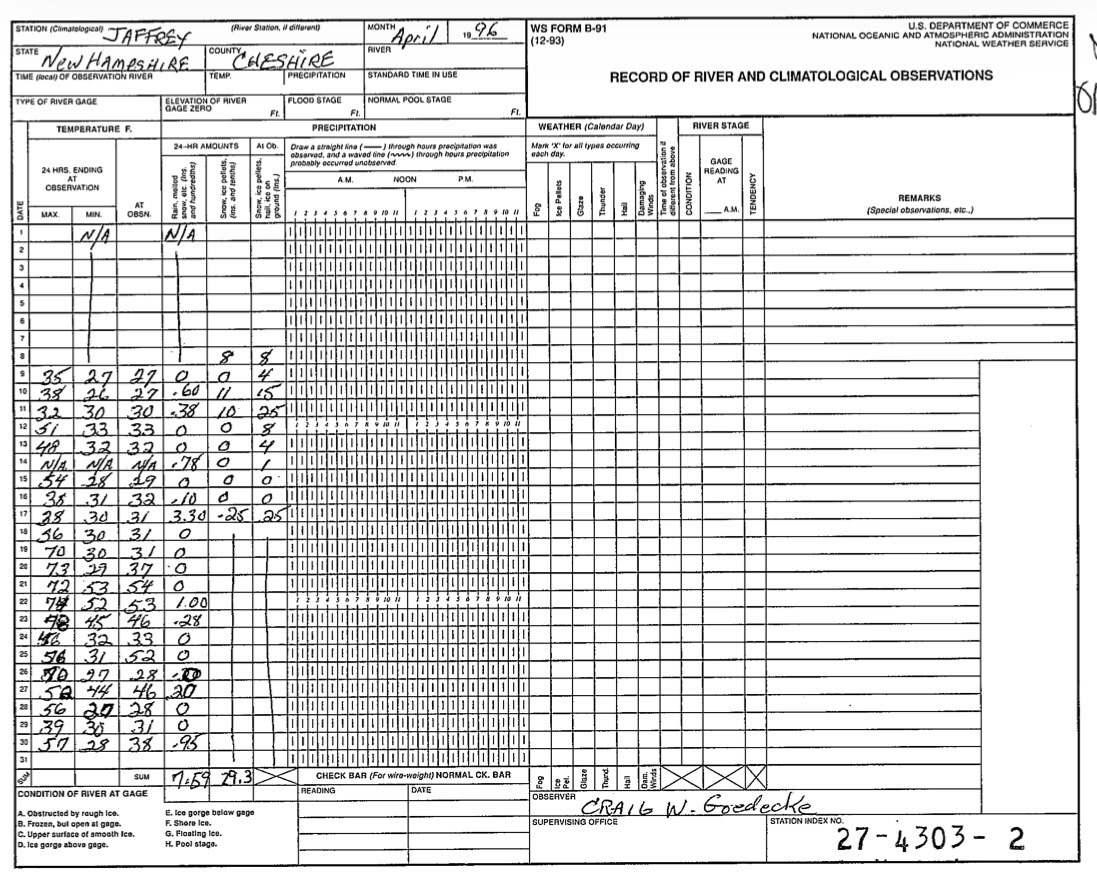 STATION (Climatological) JAFFREY (River Station, if different) MONTH April 19 96 WS FORM B-91 (12-93) U.S. DEPARTMENT OF COMMERCE
NATIONAL OCEANIC AND ATMOSPHERIC ADMINISTRATION
NATIONAL WEATHER SERVICE
STATE New HAMPSHIRE COUNTY CHESHIRE RIVER
TIME (local) OF OBSERVATION RIVER TEMP. PRECIPITATION STANDARD TIME IN USE
RECORD OF RIVER AND CLIMATOLOGICAL OBSERVATIONS
TYPE OF RIVER GAGE ELEVATION OF RIVER GAGE ZERO Ft. FLOOD STAGE Ft. NORMAL POOL STAGE Ft.
TEMPERATURE F. PRECIPITATION WEATHER (Calendar Day) RIVER STAGE
24 HRS. ENDING AT OBSERVATION 24-HR AMOUNTS At Ob.
Draw a straight line (——) through hours precipitation was observed, and a waved line (~~~) through hours precipitation probably occurred unobserved.
Mark 'X' for all types occurring each day.
A.M. NOON P.M.
DATE MAX. MIN. AT OBSN.
Rain, melted snow, etc. (ins. and hundredths)
Snow, ice pellets, (ins. and tenths)
Snow, ice pellets, hail, ice on ground (ins.)
1 2 3 4 5 6 7 8 9 10 11 1 2 3 4 5 6 7 8 9 10 11
Fog Ice Pellets Glaze Thunder Hail Damaging Winds
Time of observation if different from above
CONDITION GAGE READING AT ___ A.M. TENDENCY
REMARKS
(Special observations, etc.,)
1 N/A N/A
2
3
4
5
6
7
8 8 8
9 35 27 27 0 0 4
10 38 26 27 .60 11 15
11 32 30 30 .38 10 25
12 51 33 33 0 0 8
1 2 3 4 5 6 7 8 9 10 11 1 2 3 4 5 6 7 8 9 10 11
13 48 32 32 0 0 4
14 N/A N/A N/A .78 0 1
15 54 28 29 0 0 0
16 38 31 32 .10 0 0
17 38 30 31 3.30 .25 .25
18 56 30 31 0
19 70 30 31 0
20 73 29 37 0
21 72 53 54 0
22 74 52 53 1.00
1 2 3 4 5 6 7 8 9 10 11 1 2 3 4 5 6 7 8 9 10 11
23 45 46 .28
24 32 33 0
25 31 52 0
26 27 28
27 44 46 .20
28 56 28 0
29 39 30 31 0
30 57 28 38 .95
31
SUM SUM 7.59 29.3 CHECK BAR (For wire-weight) NORMAL CK. BAR Fog Ice Pel. Glaze Thund. Hail Dam. Winds
CONDITION OF RIVER AT GAGE READING DATE OBSERVER CRAIG W. Goedecke
A. Obstructed by rough ice. E. Ice gorge below gage SUPERVISING OFFICE STATION INDEX NO.
B. Frozen, but open at gage. F. Shore ice. 27-4303-2
C. Upper surface of smooth ice. G. Floating ice.
D. Ice gorge above gage. H. Pool stage.